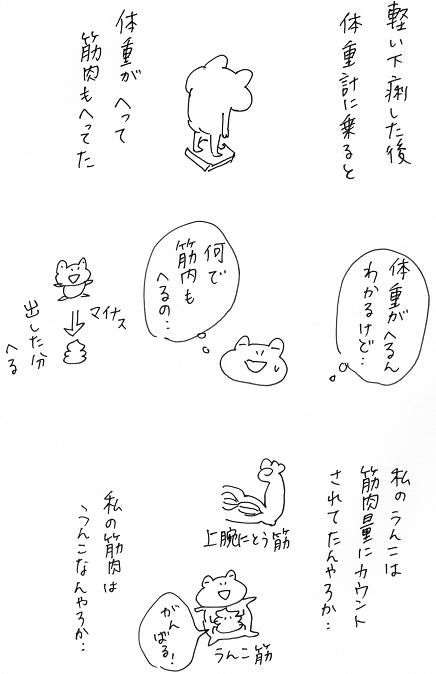 軽い下痢した後
体重計に乗ると
体重がへって
筋肉もへってた
体重がへるん
わかるけど…
何で
筋肉も
へるの…
マイナス
出した分
へる
私のうんこは
筋肉量にカウント
されてたんやろか…
上腕にとう筋
がんばる!
うんこ筋
私の筋肉は
うんこなんやろか…